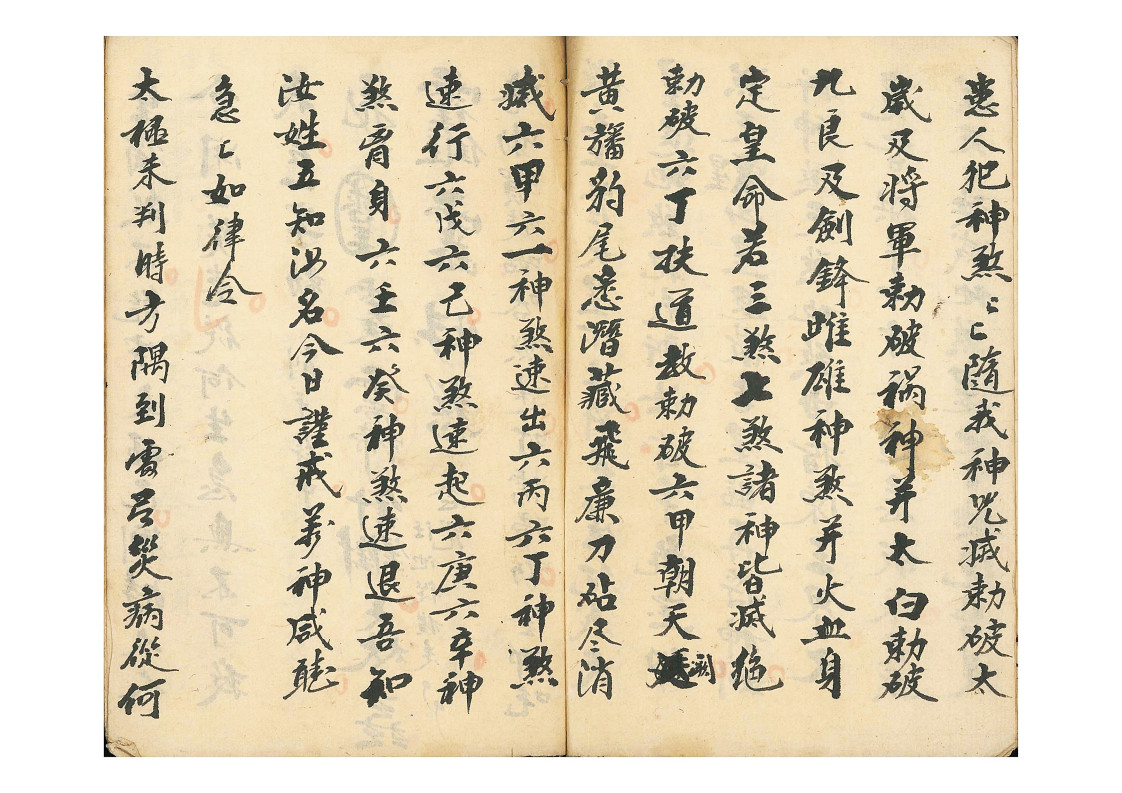 患人犯神煞〻〻隨我神咒滅勅破太
歲及將軍勅破禍神并太白勅破
九良及劍鋒雌雄神煞并火血身
定皇命若三煞上煞諸神皆滅絶
勅破六丁扶道教勅破六甲朝天
黃旛豹尾悉潛藏飛廉刀砧尽消
滅六甲六一神煞速出六丙六丁神煞
速行六戊六己神煞速起六庚六辛神
煞育身六壬六癸神煞速退吾知
汝姓五知汝名今日謹戒萬神咸聴
急〻如律令
太極未判時方隅到雲呂災病從何